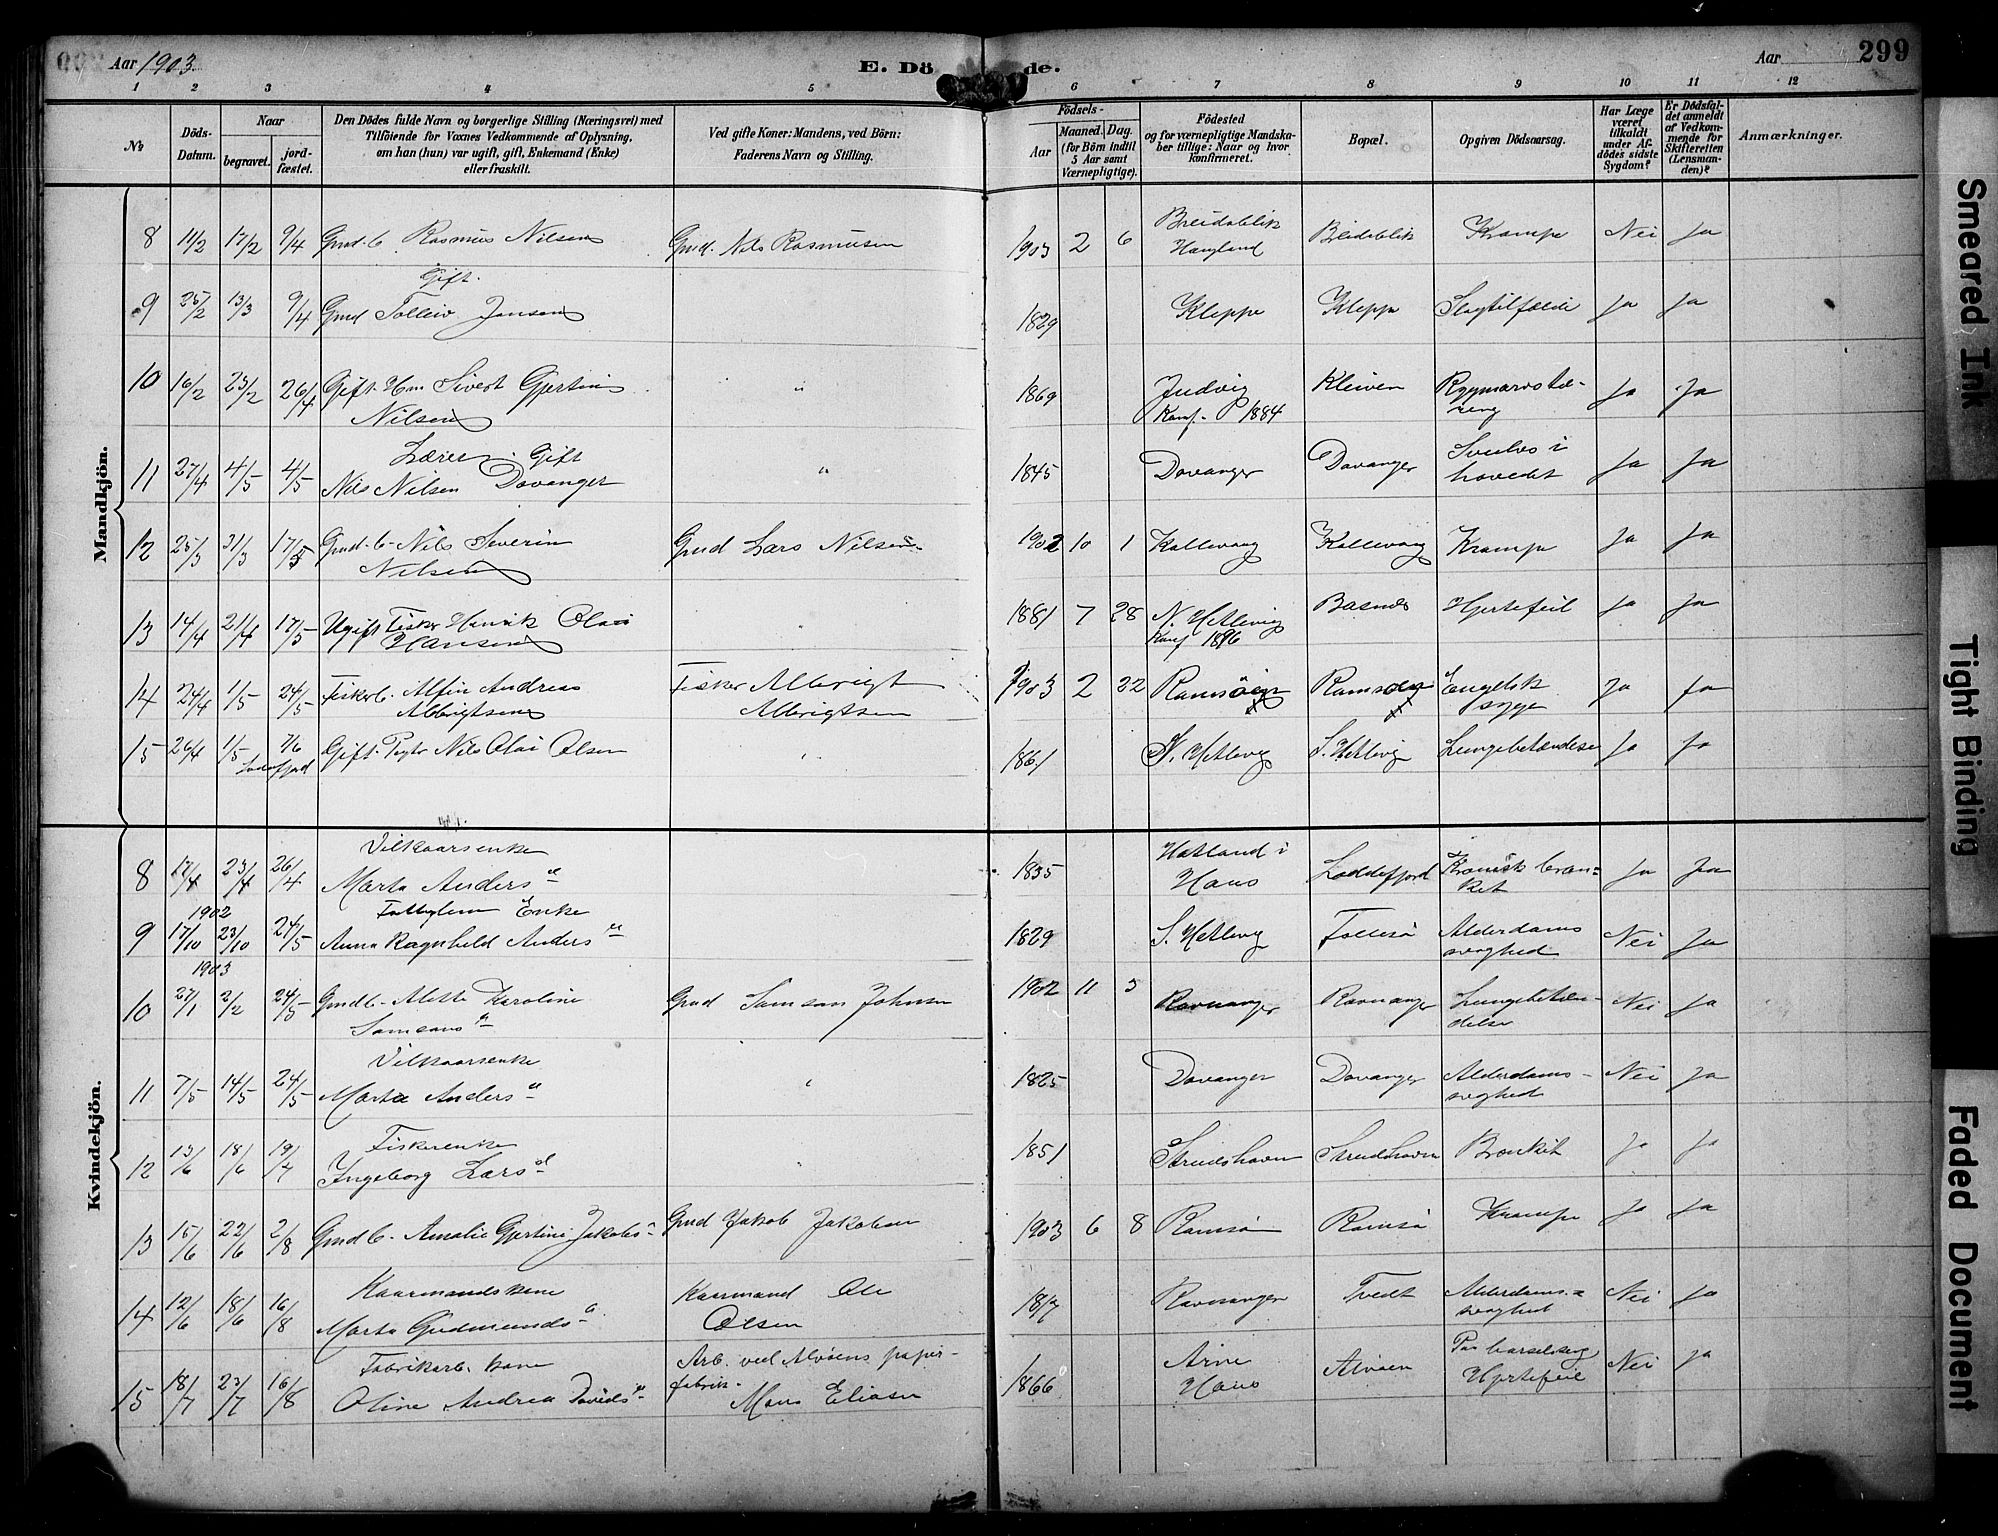 Aar 1903. E. Dö de. Aar 299
1 2 3 4 5 6 7 8 9 10 11 12
No
Döds-Datum.
Naar
begravet.
jord-fæstet.
Den Dödes fulde Navn og borgerlige Stilling (Næringsvei) med
Tilföiende for Voxnes Vedkommende af Oplysning,
om han (hun) var ugift, gift, Enkemand (Enke)
eller fraskilt.
Ved gifte Koner: Mandens, ved Börn:
Faderens Navn og Stilling.
Födsels-
Aar
Maaned. Dag.
(for Börn indtil
5 Aar samt
Værnepligtige).
Födested
og for værnepligtige Mandska-
ber tillige: Naar og hvor
konfirmeret.
Bopæl.
Opgiven Dödsaarsag.
Har Læge
været
tilkaldt
under Af-
dödes sidste
Sygdom?
Er Dödsfal-
det anmeldt
af Vedkom-
mende for
Skifteretten
(Lensman-
den)?
Anmærkninger.
Mandkjön.
8 11/2 17/2 9/4 Gmd. b. Rasmus Nilsen Gmd. Nils Rasmusen 1903 2 6 Breidablik Bleideblik Krampe Nei Ja
Haugland
Gift.
9 25/2 13/3 9/4 Gmd Tolleiv Jonsen 1829 Kleppe Kleppe Slagtilfælde Ja Ja
10 16/2 23/2 26/4 Gift. Hm Sivert Gjertin " 1869 Indvig Kleiven Rygmarvstæ- Ja Ja
Nilsen Konf. P 1884 ring
Lærer. Gift
11 27/4 4/5 4/5 Nils Nilsen Davanger " 1845 Davanger Davanger Svulves i Ja Ja
hovedet
12 25/3 31/3 17/5 Gmd. b. Nils Severin Gmd Lars Nilsen 1902 10 1 Kollevaag Kollevaag Krampe Ja Ja
Nilsen
13 14/4 21/4 17/5 Ugift Fisker Henrik Olai " 1881 7 28 N. Hetlevig Basnes Hjertefeil Ja Ja
Hansen Konf 1896
14 24/4 1/5 24/5 Fiskerb. Alfin Andreas Fisker Albrigt 1903 2 22 Ramsöen Ramsöen Engelsk Ja Ja
Albrigtsen Albrigtsen syge
15 26/4 1/5 7/6 Gift. Nils Olai Olsen " 1861 S. Hetlevig S. Hetlevig Lungebetændelse Ja Ja
Loddefjord
Kvindekjön.
Vilkaarsenke
8 17/4 23/4 26/4 Marta Anders d 1835 Hatland i Loddefjord Kronisk bron- Ja Ja
Haus kit
1902 Fattiglem Enke
9 17/10 23/10 24/5 Anna Ragnhild Anders d 1829 S. Hetlevig Follesö Alderdoms Nei Ja
svaghed
1903
10 27/1 2/2 24/5 Gmdb. Alette Karoline Gmd Samson Johnsen 1902 11 5 Ravnanger Ravnanger Lungebetæn- Nei Ja
Samsons d delse
Vilkaarsenke
11 7/5 14/5 24/5 Marta Anders d " 1825 Davanger Davanger Alderdoms- Nei Ja
svaghed
Fiskerenke
12 13/6 18/6 19/7 Ingeborg Lars d " 1851 Strudshavn Strudshavn Bronkit Ja Ja
13 15/6 22/6 2/8 Gmdb. Amalie Gjertine Jakobs d Gmd Jakob Jakobsen 1903 6 8 Ramsö Ramsö Krampe Ja Ja
Kaarmandskone Kaarmand Ole
14 12/6 18/6 16/8 Marta Gudmunds d Olsen 1817 Ravnanger Tvedt Alderdoms- Nei Ja
svaghed
Fabrikarb. kone Arb. ved Alvöens papir- Paa barselseng
15 18/7 23/7 16/8 Oline Andrea Davids d fabrik. Mons Eliasen 1866 Arne Alvöen Hjertefeil Nei Ja
Haus
Smeared Ink
Tight Binding
Faded Document